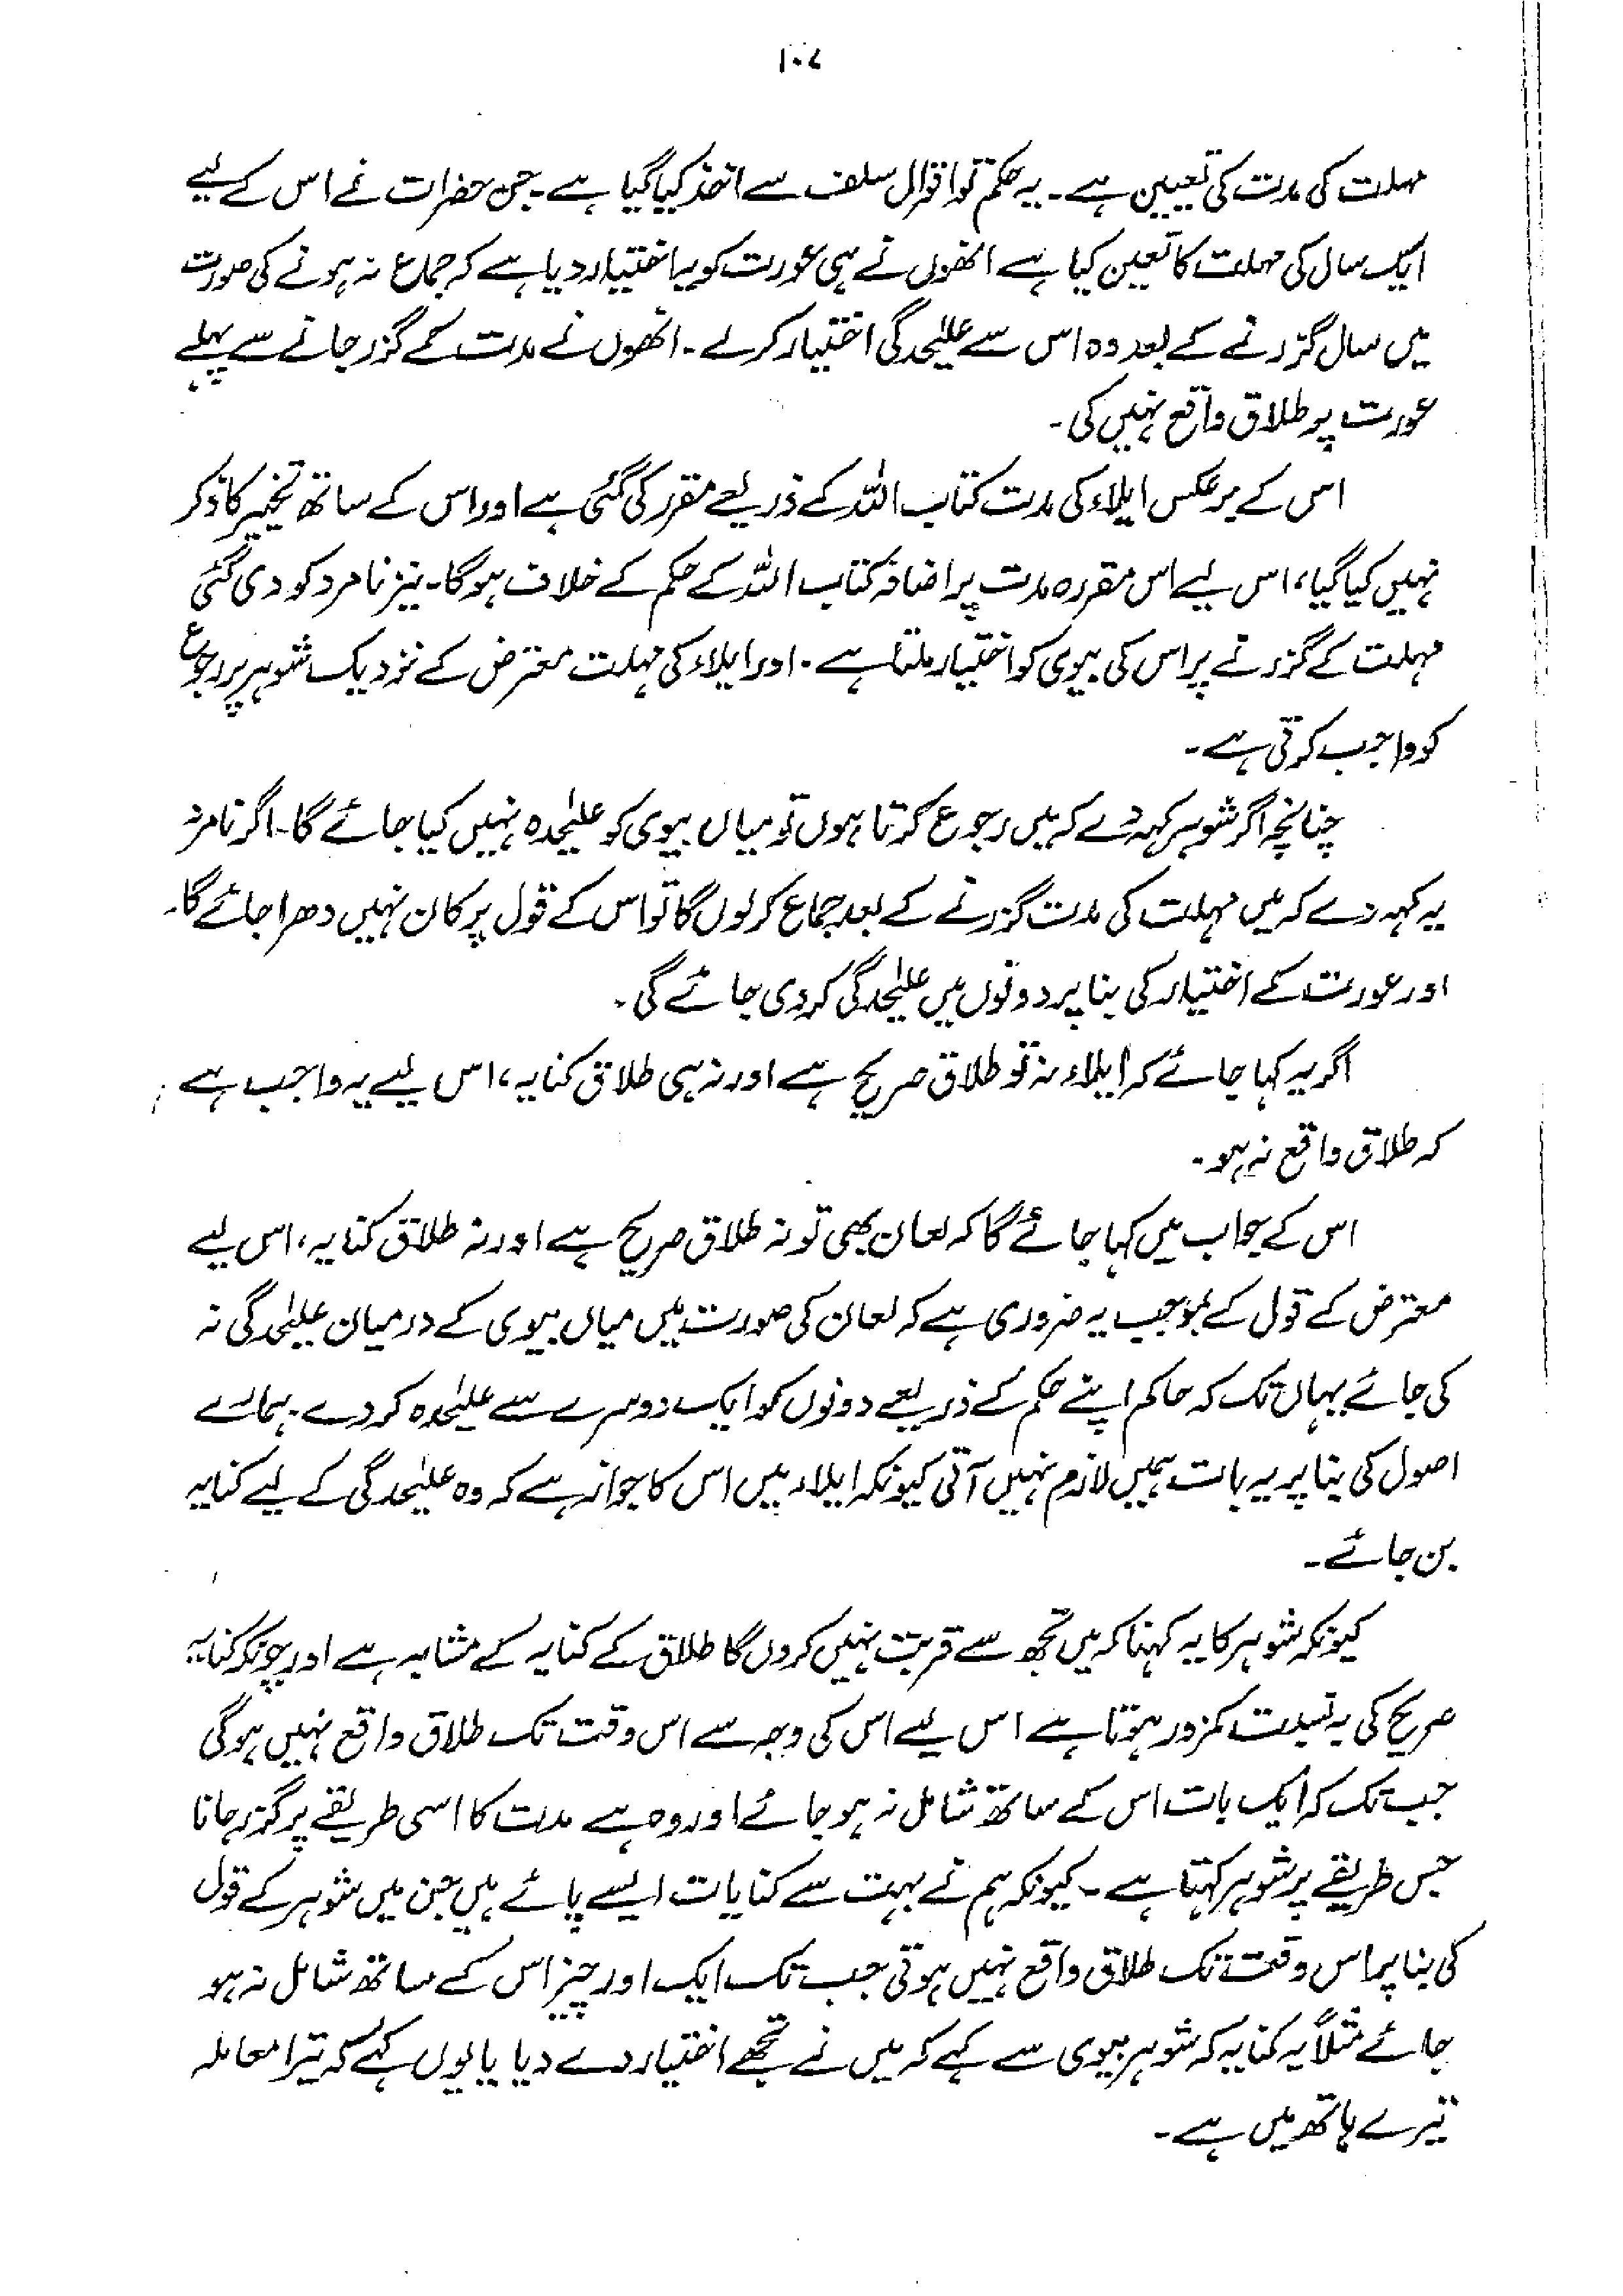 ۱۰۷
مہلت کی مدت کی تعیین ہے۔ یہ حکم تو اقوال سلف سے اخذ کیا گیا ہے۔ جن حضرات نے اس کے لیے
ایک سال کی مہلت کا تعین کیا ہے انھوں نے ہی عورت کو یہ اختیار دیا ہے کہ جماع نہ ہونے کی صورت
میں سال گزرنے کے بعد وہ اس سے علیٰحدگی اختیار کرلے۔ انھوں نے مدت کے گزر جانے سے پہلے
عورت پر طلاق واقع نہیں کی۔
اس کے برعکس ایلاء کی مدت کتاب اللہ کے ذریعے مقرر کی گئی ہے اور اس کے ساتھ تخییر کا ذکر
نہیں کیا گیا، اس لیے اس مقررہ مدت پر اضافہ کتاب اللہ کے حکم کے خلاف ہوگا۔ نیز نامرد کو دی گئی
مہلت کے گزرنے پر اس کی بیوی کو اختیار ملتا ہے۔ اور ایلاء کی مہلت معترض کے نزدیک شوہر پر رجوع
کو واجب کرتی ہے۔
چنانچہ اگر شوہر کہہ دے کہ میں رجوع کرتا ہوں تو میاں بیوی کو علیٰحدہ نہیں کیا جائے گا۔ اگر نامرد
یہ کہہ دے کہ میں مہلت کی مدت گزرنے کے بعد جماع کرلوں گا تو اس کے قول پر کان نہیں دھرا جائے گا۔
اور عورت کے اختیار کی بنا پر دونوں میں علیٰحدگی کردی جائے گی۔
اگر یہ کہا جائے کہ ایلاء نہ تو طلاق صریح ہے اور نہ ہی طلاق کنایہ، اس لیے یہ واجب ہے
کہ طلاق واقع نہ ہو۔
اس کے جواب میں کہا جائے گا کہ لعان بھی تو نہ طلاق صریح ہے اور نہ طلاق کنایہ، اس لیے
معترض کے قول کے بموجب یہ ضروری ہے کہ لعان کی صورت میں میاں بیوی کے درمیان علیٰحدگی نہ
کی جائے یہاں تک کہ حاکم اپنے حکم کے ذریعے دونوں کو ایک دوسرے سے علیٰحدہ کردے۔ ہمارے
اصول کی بنا پر یہ بات ہمیں لازم نہیں آتی کیونکہ ایلاء میں اس کا جواز ہے کہ وہ علیٰحدگی کے لیے کنایہ
بن جائے۔
کیونکہ شوہر کا یہ کہنا کہ میں تجھ سے قربت نہیں کروں گا طلاق کے کنایہ کے مشابہ ہے اور چونکہ کنایہ
صریح کی بہ نسبت کمزور ہوتا ہے اس لیے اس کی وجہ سے اس وقت تک طلاق واقع نہیں ہوگی
جب تک کہ ایک بات اس کے ساتھ شامل نہ ہو جائے اور وہ ہے مدت کا اسی طریقے پر گزر جانا
جس طریقے پر شوہر کہتا ہے۔ کیونکہ ہم نے بہت سے کنایات ایسے پائے ہیں جن میں شوہر کے قول
کی بنا پر اس وقت تک طلاق واقع نہیں ہوتی جب تک ایک اور چیز اس کے ساتھ شامل نہ ہو
جائے مثلاً یہ کنایہ کہ شوہر بیوی سے کہے کہ میں نے تجھے اختیار دے دیا یا یوں کہے کہ تیرا معاملہ
تیرے ہاتھ میں ہے۔